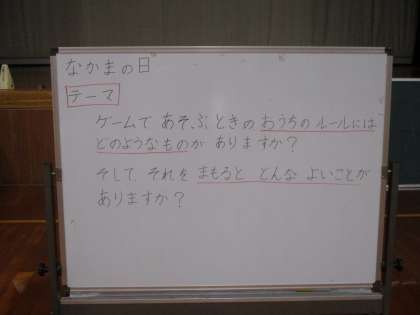 なかまの日
テーマ
ゲームで あそぶ ときの おうちの ルールには
どのようなものが ありますか?
そして それを まもると どんな よいことが
ありますか?